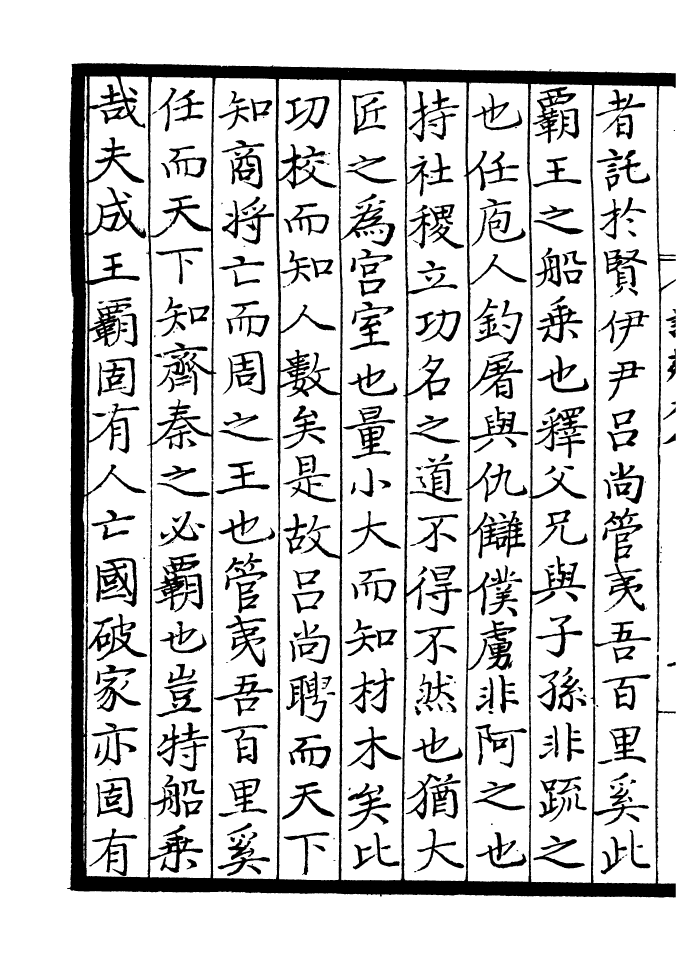 者託於賢伊尹呂尚管夷吾百里奚此
覇王之船乗也釋父兄與子孫非疏之
也任庖人釣屠與仇讎僕虜非阿之也
持社稷立功名之道不得不然也猶大
匠之爲宮室也量小大而知材木矣比
功校而知人數矣是故呂尚聘而天下
知商将亡而周之王也管夷吾百里奚
任而天下知齊秦之必覇也豈特船乗
哉夫成王覇固有人亡國破家亦固有